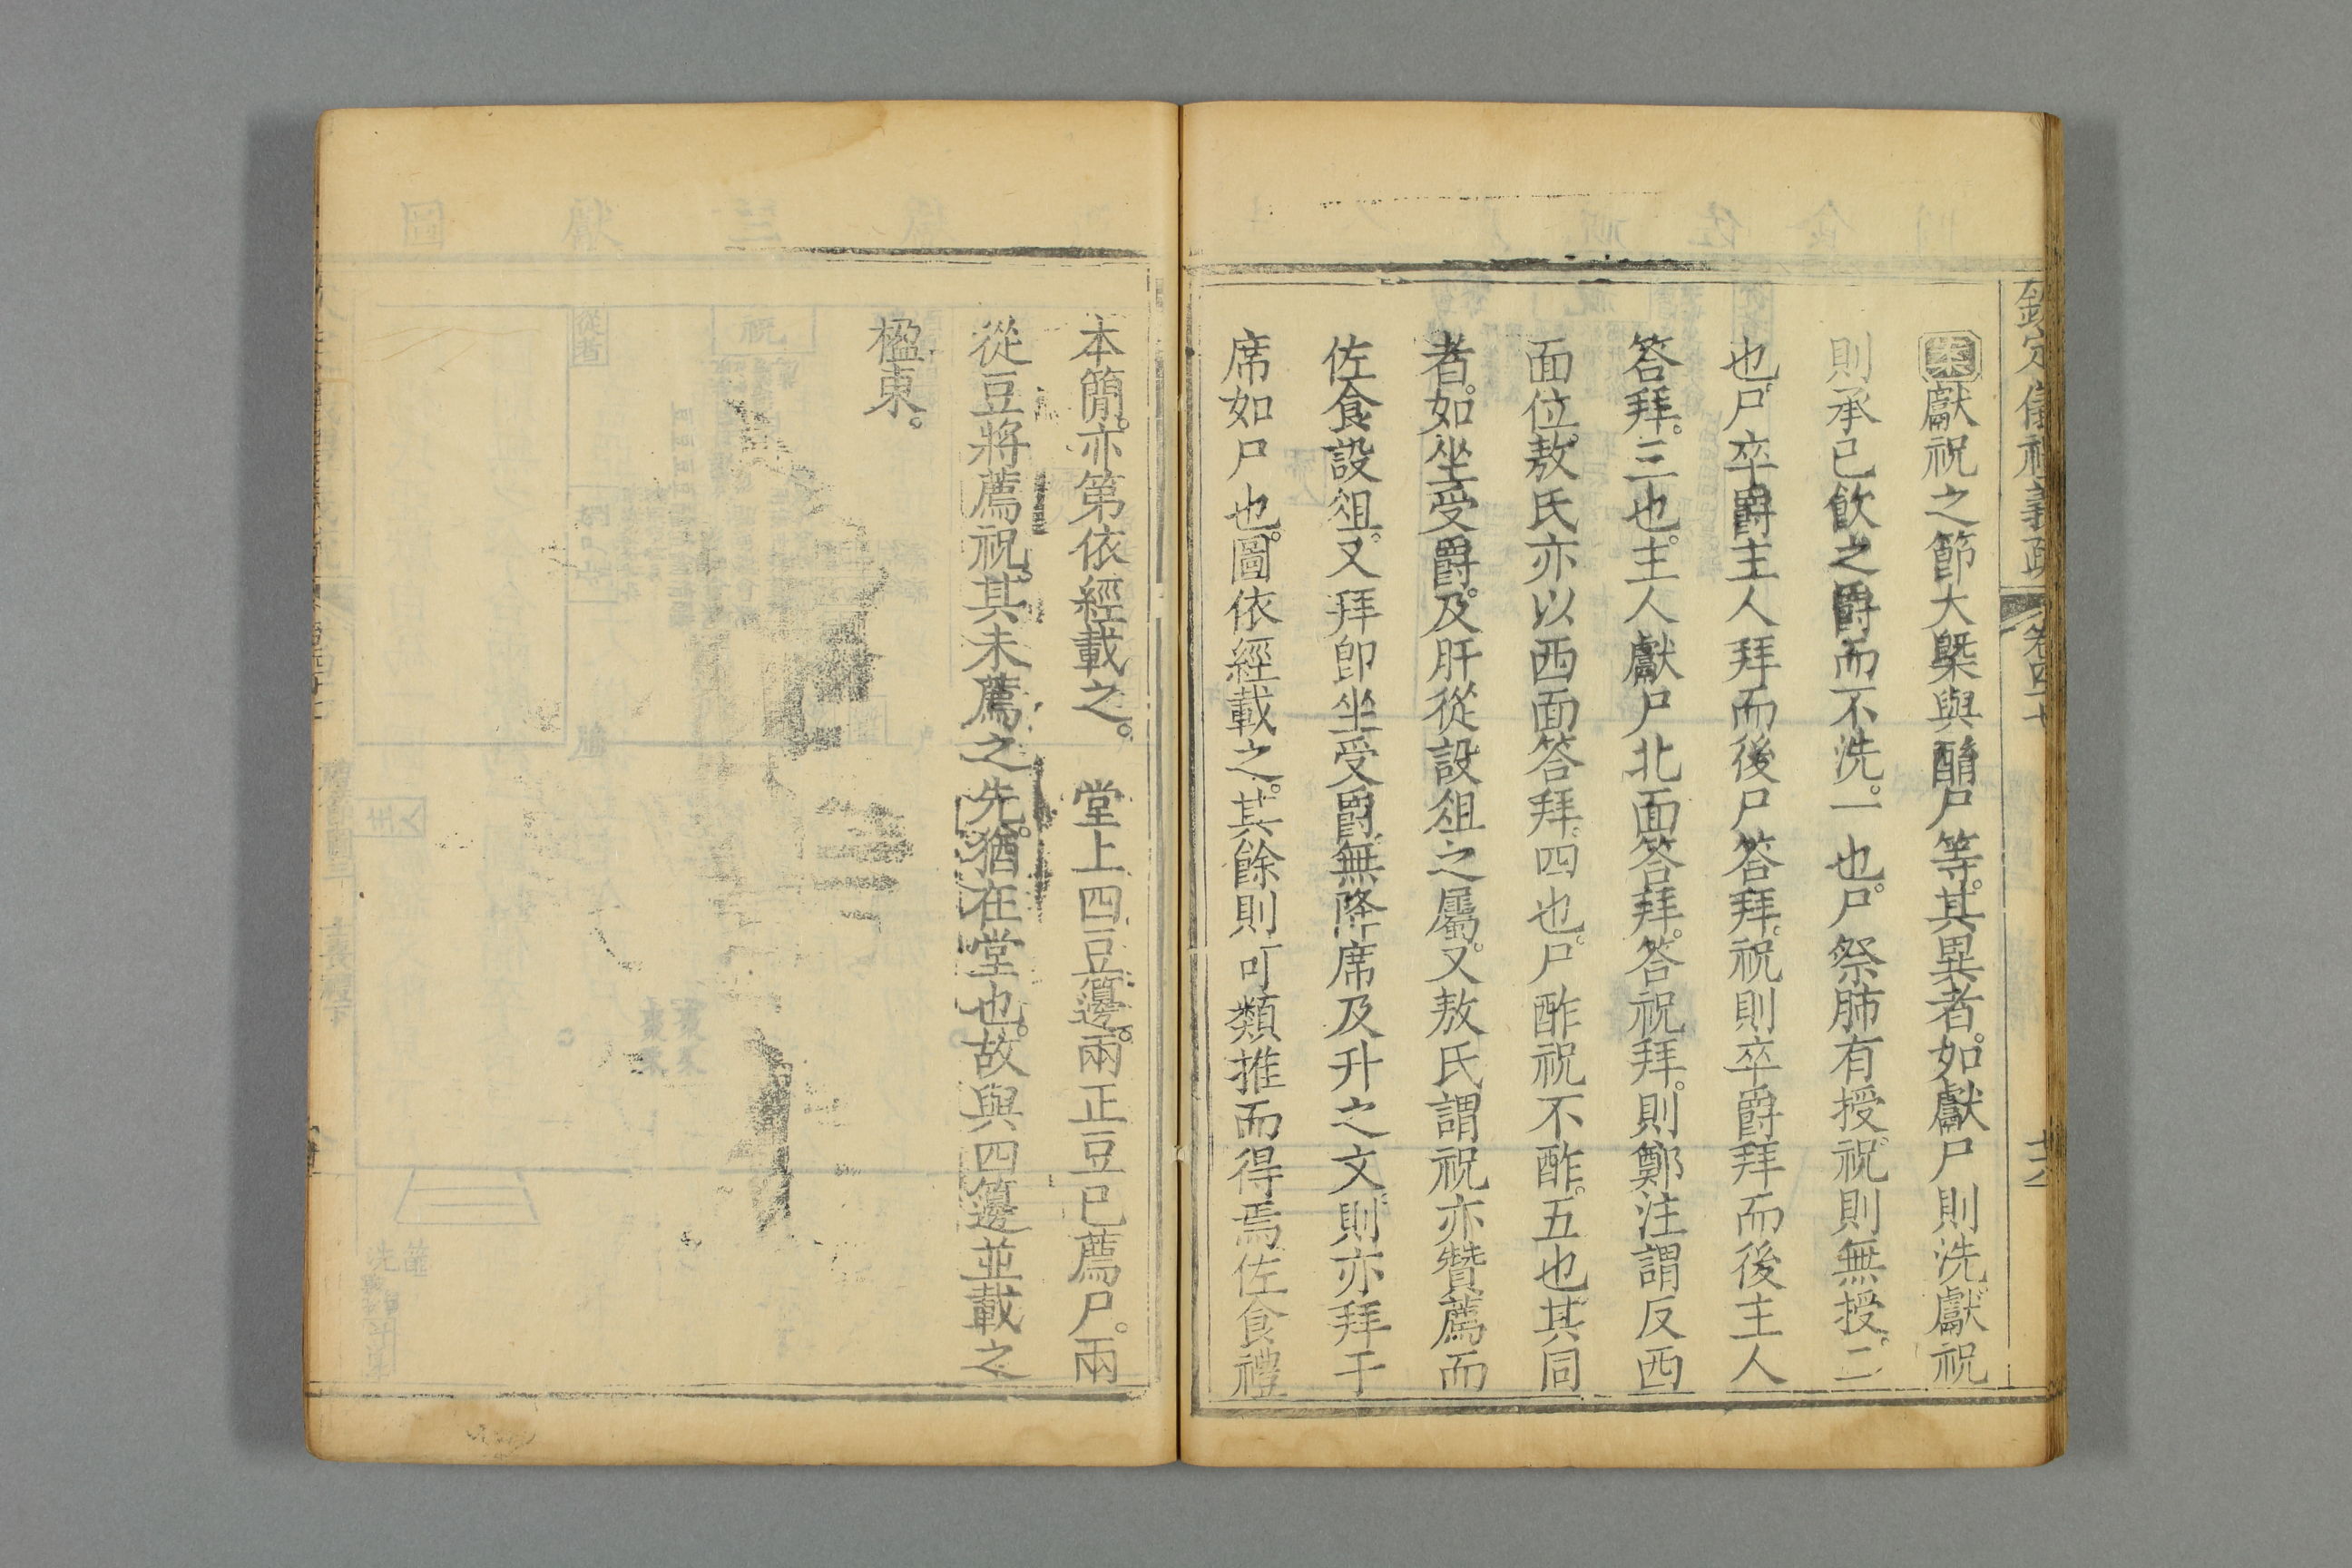 欽定儀禮義疏 卷四十七 十六
案獻祝之節大槩與酳尸等。其異者。如獻尸則洗獻祝
則承已飲之爵而不洗。一也。尸祭肺有授。祝則無授。二
也。尸卒爵主人拜而後尸答拜。祝則卒爵拜而後主人
答拜。三也。主人獻尸北面答拜。答祝拜。則鄭注謂反西
面位。敖氏亦以西面答拜。四也。尸酢祝不酢。五也。其同
者。如坐受爵。及肝從設俎之屬。又敖氏謂祝亦贊薦而
佐食設俎。又拜卽坐受爵。無降席及升之文。則亦拜于
席如尸也。圖依經載之。其餘則可類推而得焉佐食禮
本簡。亦第依經載之。 堂上四豆籩。兩正豆已薦尸。兩
從豆將薦祝。其未薦之先。猶在堂也。故與四籩並載之
楹東。